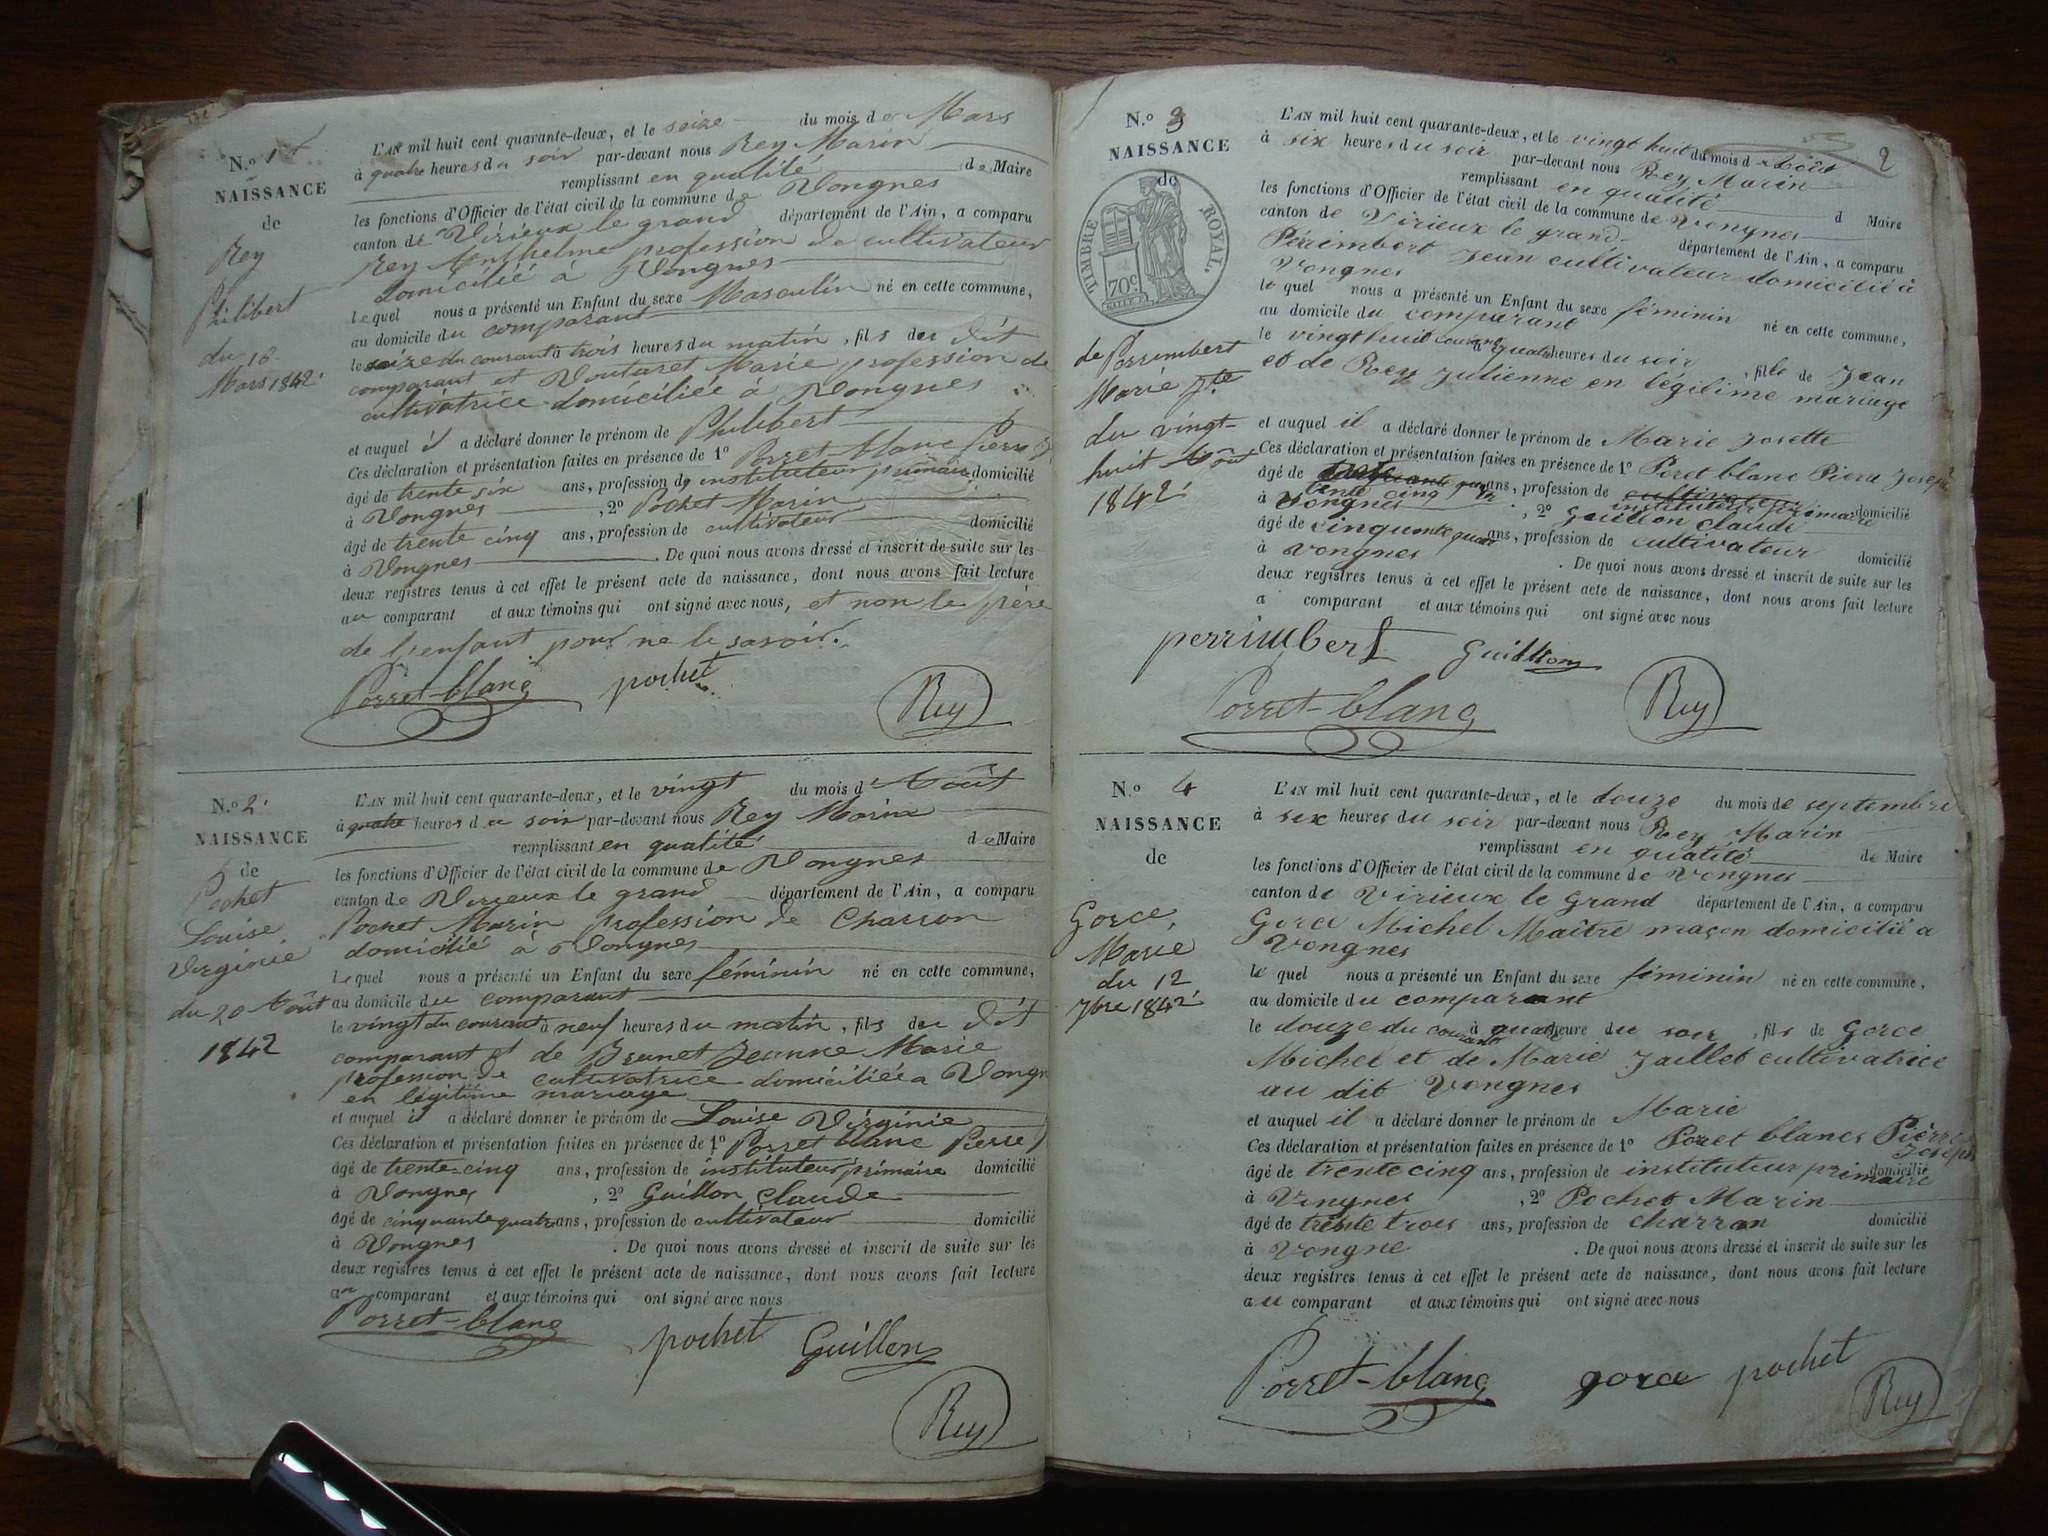 N.o 1
NAISSANCE
de
Rey
Philibert
du 16
Mars 1842
L'AN mil huit cent quarante-deux, et le seize du mois de Mars
à quatre heures du soir par-devant nous Rey Marin
remplissant en qualité de Maire
les fonctions d'Officier de l'état civil de la commune de Vongnes
canton de Virieux le grand département de l'Ain, a comparu
Rey Anthelme profession de cultivateur
domicilié à Vongnes
lequel nous a présenté un Enfant du sexe Masculin né en cette commune,
au domicile du comparant
le seize du courant à trois heures du matin, fils du dit
comparant et Voutaret Marie profession de
cultivatrice domiciliée à Vongnes
et auquel il a déclaré donner le prénom de Philibert
Ces déclaration et présentation faites en présence de 1o Porret-blanc Pierre J
âgé de trente six ans, profession de instituteur primaire domicilié
à Vongnes, 2o Pochet Marin
âgé de trente cinq ans, profession de cultivateur domicilié
à Vongnes. De quoi nous avons dressé et inscrit de suite sur les
deux registres tenus à cet effet le présent acte de naissance, dont nous avons fait lecture
au comparant et aux témoins qui ont signé avec nous, et non le père
de l'enfant pour ne le savoir.
Porret-blanc pochet Rey
N.o 2
NAISSANCE
de
Pochet
Louise
Virginie
du 20 Août
1842
L'AN mil huit cent quarante-deux, et le vingt du mois d'Août
à quatre heures du soir par-devant nous Rey Marin
remplissant en qualité de Maire
les fonctions d'Officier de l'état civil de la commune de Vongnes
canton de Virieux le grand département de l'Ain, a comparu
Pochet Marin profession de Charron
domicilié à Vongnes
Lequel nous a présenté un Enfant du sexe féminin né en cette commune,
au domicile du comparant
le vingt du courant à neuf heures du matin, fils du dit
comparant et de Brunet Jeanne Marie
profession de cultivatrice domiciliée a Vongn
en légitime mariage
et auquel il a déclaré donner le prénom de Louise Virginie
Ces déclaration et présentation faites en présence de 1o Porret blanc Pierre J
âgé de trente-cinq ans, profession de instituteur primaire domicilié
à Vongnes, 2o Guillon Claude
âgé de cinquante quatre ans, profession de cultivateur domicilié
à Vongnes. De quoi nous avons dressé et inscrit de suite sur les
deux registres tenus à cet effet le présent acte de naissance, dont nous avons fait lecture
au comparant et aux témoins qui ont signé avec nous
Porret-blanc pochet Guillon
Rey
2
N.o 3
NAISSANCE
de
TIMBRE ROYAL.
70c.
de Perrimbert
Marie Jte
du vingt-
huit Août
1842
L'AN mil huit cent quarante-deux, et le vingt huit du mois d'Août
à six heures du soir par-devant nous Rey Marin
remplissant en qualité d Maire
les fonctions d'Officier de l'état civil de la commune de Vongnes
canton de Virieux le grand département de l'Ain, a comparu
Périmbert Jean cultivateur domicilié à
Vongnes
le quel nous a présenté un Enfant du sexe féminin né en cette commune,
au domicile du comparant
le vingt huit courant à quatre heures du soir, fille de Jean
et de Rey Julienne en légitime mariage
et auquel il a déclaré donner le prénom de Marie Josette
Ces déclaration et présentation faites en présence de 1o Poret blanc Pierre Joseph
âgé de trente cinq ans, profession de cultivateur instituteur primaire domicilié
à Vongnes, 2o Guillon Claude
âgé de cinquante quatre ans, profession de cultivateur domicilié
à Vongnes. De quoi nous avons dressé et inscrit de suite sur les
deux registres tenus à cet effet le présent acte de naissance, dont nous avons fait lecture
a comparant et aux témoins qui ont signé avec nous
perrimbert Guillon
Porret-blanc Rey
N.o 4
NAISSANCE
de
Gorce
Marie
du 12
7bre 1842
L'AN mil huit cent quarante-deux, et le douze du mois de septembre
à six heures du soir par-devant nous Rey Marin
remplissant en qualité de Maire
les fonctions d'Officier de l'état civil de la commune de Vongnes
canton de Virieux le Grand département de l'Ain, a comparu
Gorce Michel Maître maçon domicilié a
Vongnes
le quel nous a présenté un Enfant du sexe féminin né en cette commune,
au domicile du comparant
le douze du courant à quatre heure du soir, fils de Gorce
Michel et de Marie Jaillet cultivatrice
au dit Vongnes
et auquel il a déclaré donner le prénom de Marie
Ces déclaration et présentation faites en présence de 1o Poret blanc Pierre Joseph
âgé de trente cinq ans, profession de instituteur primaire domicilié
à Vongnes, 2o Pochet Marin
âgé de trente trois ans, profession de charron domicilié
à Vongne. De quoi nous avons dressé et inscrit de suite sur les
deux registres tenus à cet effet le présent acte de naissance, dont nous avons fait lecture
au comparant et aux témoins qui ont signé avec nous
Porret-blanc gorce pochet
Rey